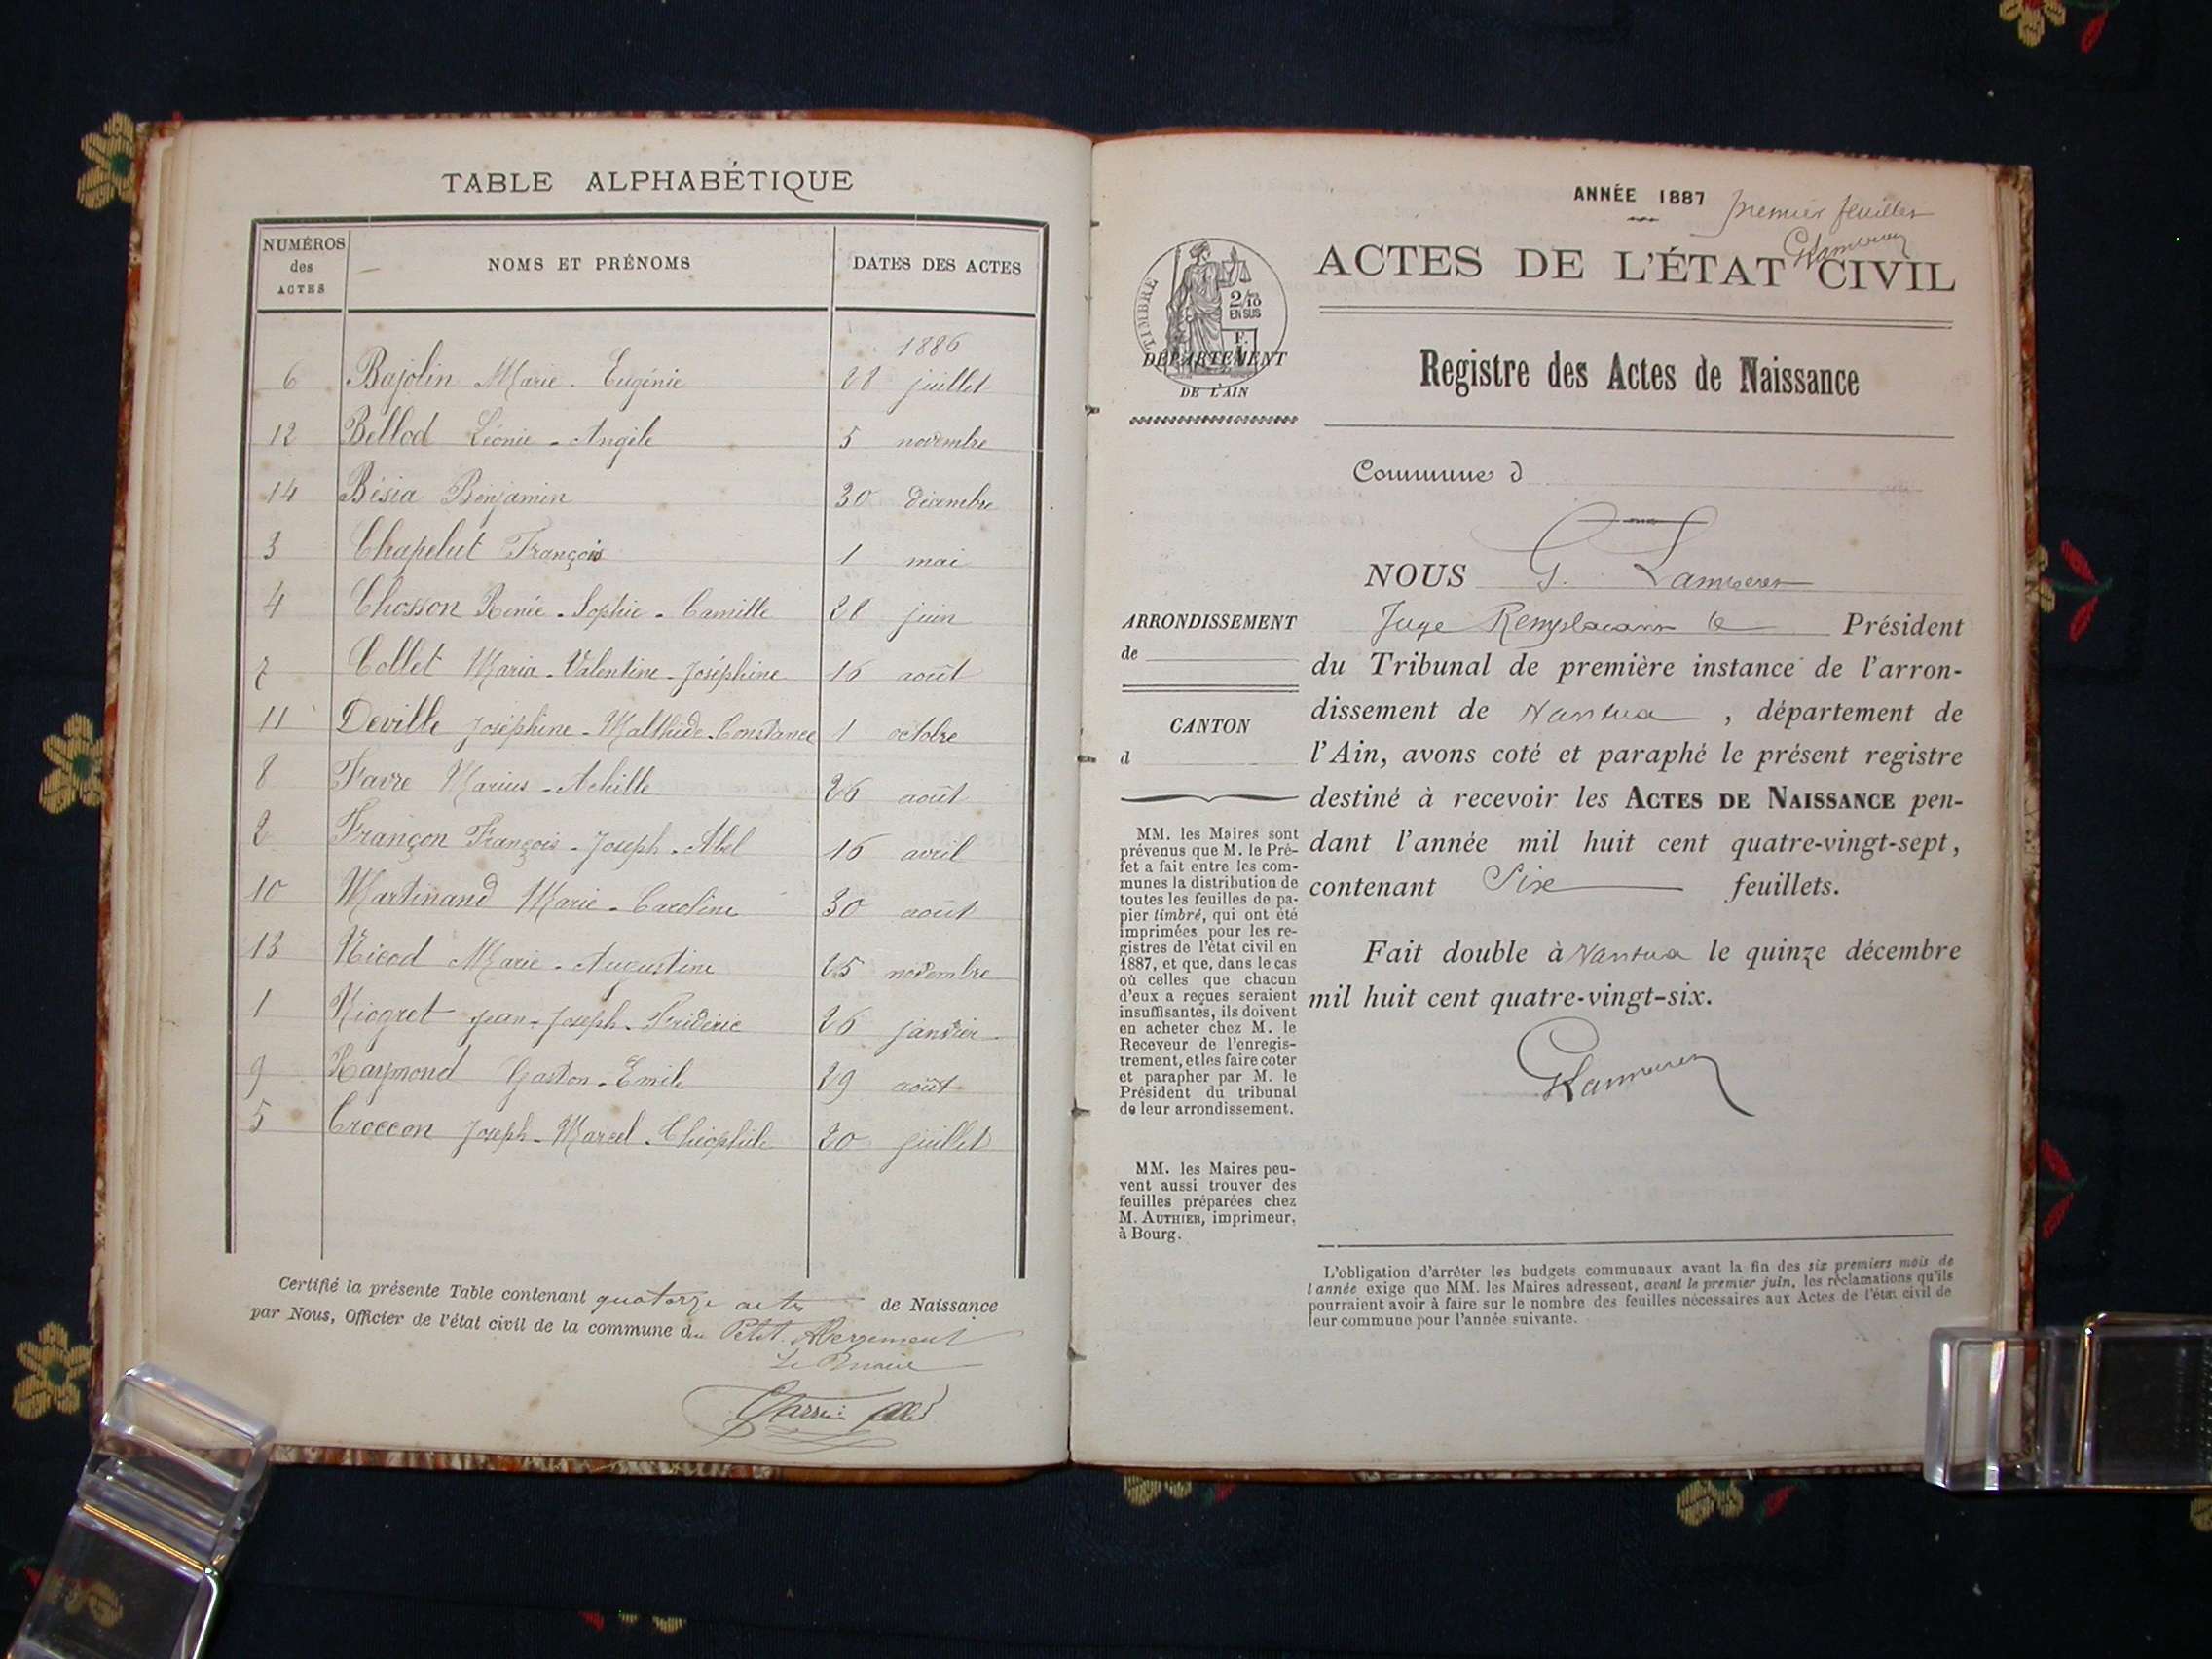 TABLE ALPHABÉTIQUE
NUMÉROS des ACTES NOMS ET PRÉNOMS DATES DES ACTES
1886
6 Bajolin Marie - Eugénie 28 juillet
12 Bellod Léonie - Angèle 5 novembre
14 Bésia Benjamin 30 décembre
3 Chapelut François 1 mai
4 Chosson Renée - Sophie - Camille 28 juin
7 Collet Maria - Valentine - Joséphine 16 août
11 Deville Joséphine - Malthide - Constance 1 octobre
8 Favre Marius - Achille 26 août
2 Françon François - Joseph - Abel 16 avril
10 Martinand Marie - Caroline 30 août
13 Nicod Marie - Augustine 25 novembre
1 Niogret Jean - Joseph - Fridéric 26 janvier
9 Raymond Gaston - Emile 29 août
5 Croccon Joseph - Marcel - Théophile 20 juillet
Certifié la présente Table contenant quatorze actes de Naissance
par Nous, Officier de l'état civil de la commune du Petit Abergement
Le Maire
ANNÉE 1887 premier feuillet
ACTES DE L'ÉTAT CIVIL
TIMBRE
2/10
EN SUS
F.
DÉPARTEMENT
DE L'AIN
Registre des Actes de Naissance
Commune d
NOUS G.
Juge Remplacant le Président
du Tribunal de première instance de l'arron-
dissement de Nantua, département de
l'Ain, avons coté et paraphé le présent registre
destiné à recevoir les ACTES DE NAISSANCE pen-
dant l'année mil huit cent quatre-vingt-sept,
contenant Six feuillets.
Fait double à Nantua le quinze décembre
mil huit cent quatre-vingt-six.
ARRONDISSEMENT
de
CANTON
d
MM. les Maires sont
prévenus que M. le Pré-
fet a fait entre les com-
munes la distribution de
toutes les feuilles de pa-
pier timbré, qui ont été
imprimées pour les re-
gistres de l'état civil en
1887, et que, dans le cas
où celles que chacun
d'eux a reçues seraient
insuffisantes, ils doivent
en acheter chez M. le
Receveur de l'enregis-
trement, et les faire coter
et parapher par M. le
Président du tribunal
de leur arrondissement.
MM. les Maires peu-
vent aussi trouver des
feuilles préparées chez
M. AUTHIER, imprimeur,
à Bourg.
L'obligation d'arrêter les budgets communaux avant la fin des six premiers mois de
l'année exige que MM. les Maires adressent, avant le premier juin, les réclamations qu'ils
pourraient avoir à faire sur le nombre des feuilles nécessaires aux Actes de l'état civil de
leur commune pour l'année suivante.